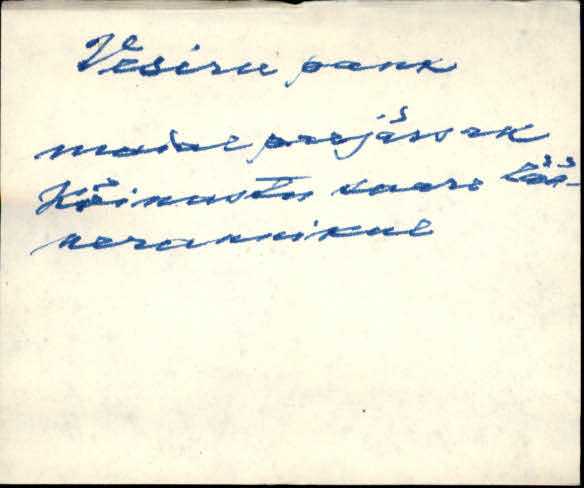 Vesiru pank
madal poojärsak
Kõinastu saare lää-
nerannikul